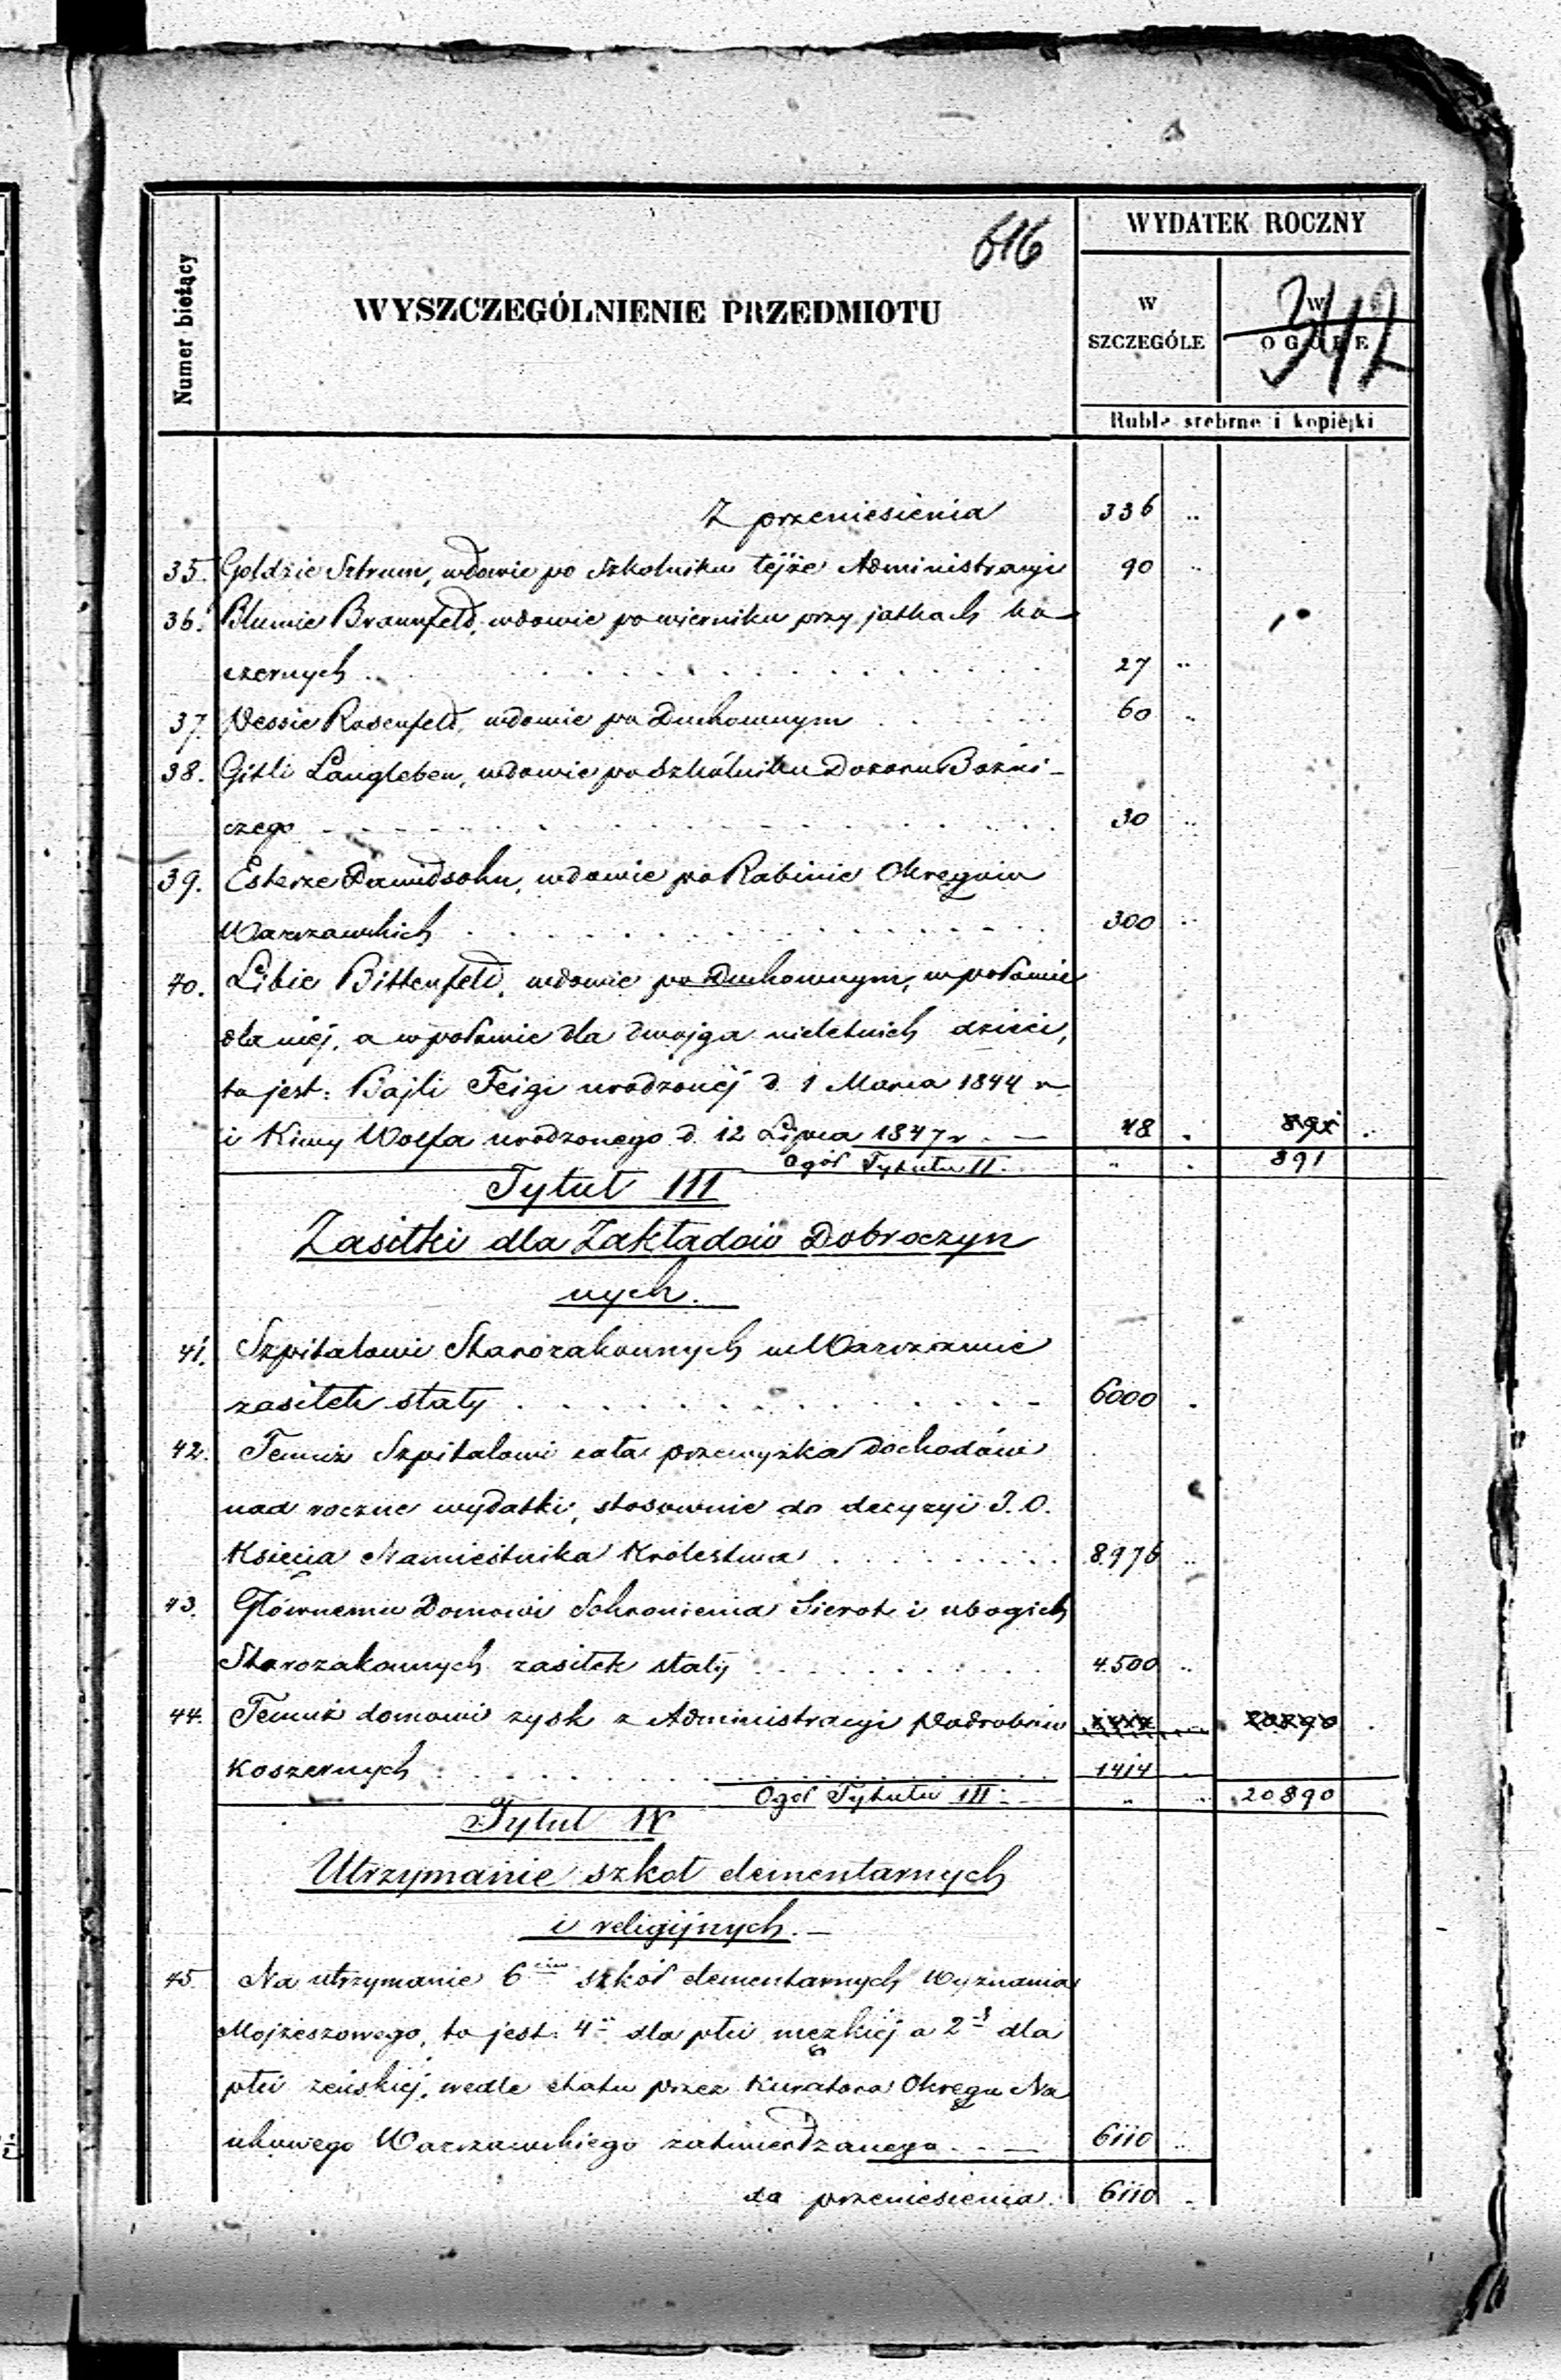 616
WYDATEK ROCZNY
Numer bieżący
WYSZCZEGÓLNIENIE PRZEDMIOTU
W SZCZEGÓLE
W OGÓLE
342
Ruble srebrne i kopiejki
Z przeniesienia 336 ..
35. Goldzie Sztrum, wdowie po Szkolniku tejże Administracyi 90 ..
36. Blumie Braunfeld, wdowie po wierniku przy jatkach ko-
szernych . . . 27 ..
37. Nessie Rosenfeld, wdowie po Duchownym . . . 60 ..
38. Gitli Langleben, wdowie po Szkólniku Dozoru Bóźni-
czego . . . 30 ..
39. Esterze Dawidsohn, wdowie po Rabinie Okręgów
Warszawskich . . . 300 ..
40. Libie Bittenfeld, wdowie po Duchownym, w połowie
dla niéj, a w połowie dla dwojga nieletnich dzieci,
to jest: Bajli Feigi urodzonéj d. 1 Marca 1844 r.
i Kiwy Wolfa urodzonego d. 12 Lipca 1847 r. — 48 . 891 .
Ogół Tytułu II. .. . 891
Tytuł III
Zasiłki dla Zakładów Dobroczyn
nych.
41. Szpitalowi Starozakonnych w Warszawie
zasiłek stały . . . 6000 .
42. Temuż Szpitalowi cała przewyżka dochodów
nad roczne wydatki, stosownie do decyzyi J. O.
Księcia Namiestnika Królestwa . . . 8.976 ..
43. Głównemu Domowi Schronienia Sierot i ubogich
Starozakonnych zasiłek stały . . . 4.500 ..
44. Temuż domowi zysk z Administracyi Podrobów 20890 .
koszernych . . . 1414 .
Ogół Tytułu III. — .. .. 20890
Tytuł IV
Utrzymanie szkół elementarnych
i religijnych. —
45 Na utrzymanie 6ciu szkół elementarnych Wyznania
Mojżeszowego, to jest: 4ch dla płci męzkiéj a 2ch dla
płci żeńskiéj, wedle etatu przez Kuratora Okręgu Na
ukowego Warszawskiego zatwierdzanego . . — 6110 ..
do przeniesienia. 6110 ..